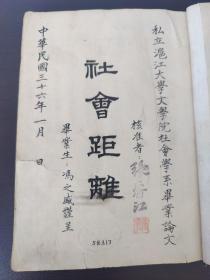 私立滬江大學文學院社會學系畢業論文
核准者：
社會距離
畢業生：馮之盛謹呈
中華民國三十六年一月 日